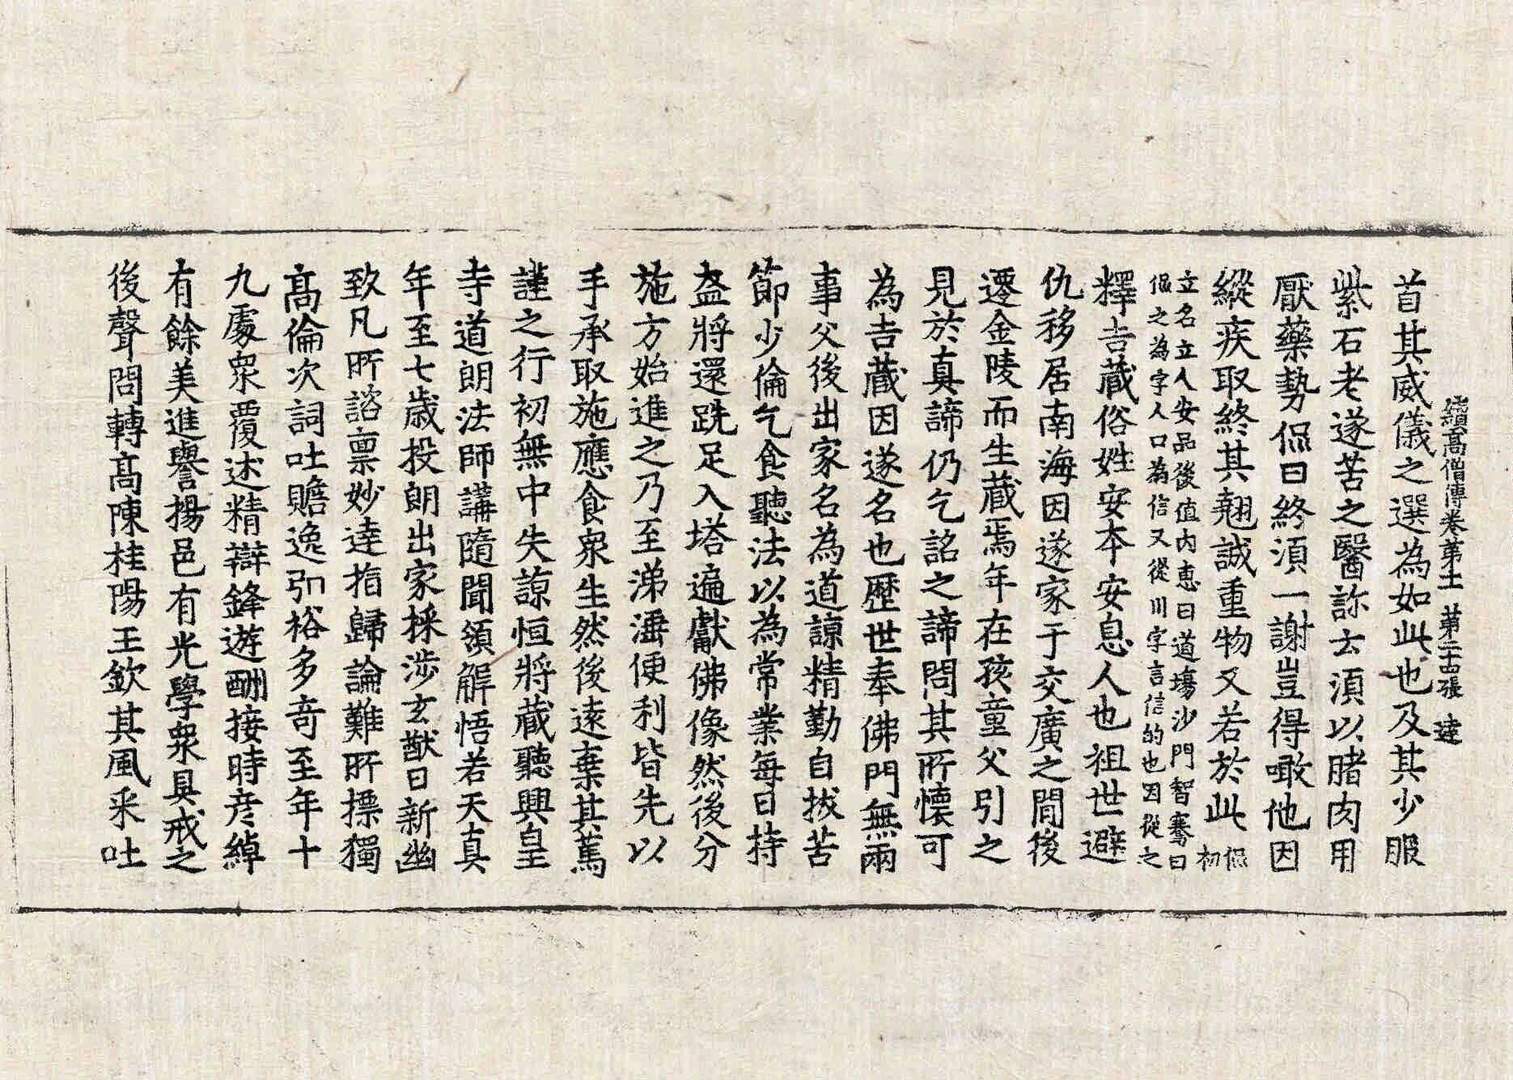 續高僧傳卷第十一 第二十四張 達
首其威儀之選為如此也及其少服
紫石老遂苦之醫診云須以腊肉用
厭藥勢侃曰終須一謝豈得噉他因
縱疾取終其翹誠重物又若於此 侃初
立名立人安品後值內惠日道場沙門智騫曰
侃之為字人口為信又從川字言信的也因從之
釋吉藏俗姓安本安息人也祖世避
仇移居南海因遂家于交廣之間後
遷金陵而生藏焉年在孩童父引之
見於真諦仍乞詺之諦問其所懷可
為吉藏因遂名也歷世奉佛門無兩
事父後出家名為道諒精勤自拔苦
節少倫乞食聽法以為常業每日持
盋將還跣足入塔遍獻佛像然後分
施方始進之乃至涕洟便利皆先以
手承取施應食眾生然後遠棄其篤
謹之行初無中失諒恒將藏聽興皇
寺道朗法師講隨聞領解悟若天真
年至七歲投朗出家採涉玄猷日新幽
致凡所諮稟妙達指歸論難所摽獨
高倫次詞吐贍逸弘裕多奇至年十
九處眾覆述精辯鋒遊酬接時彥綽
有餘美進譽揚邑有光學眾具戒之
後聲問轉高陳桂陽王欽其風釆吐